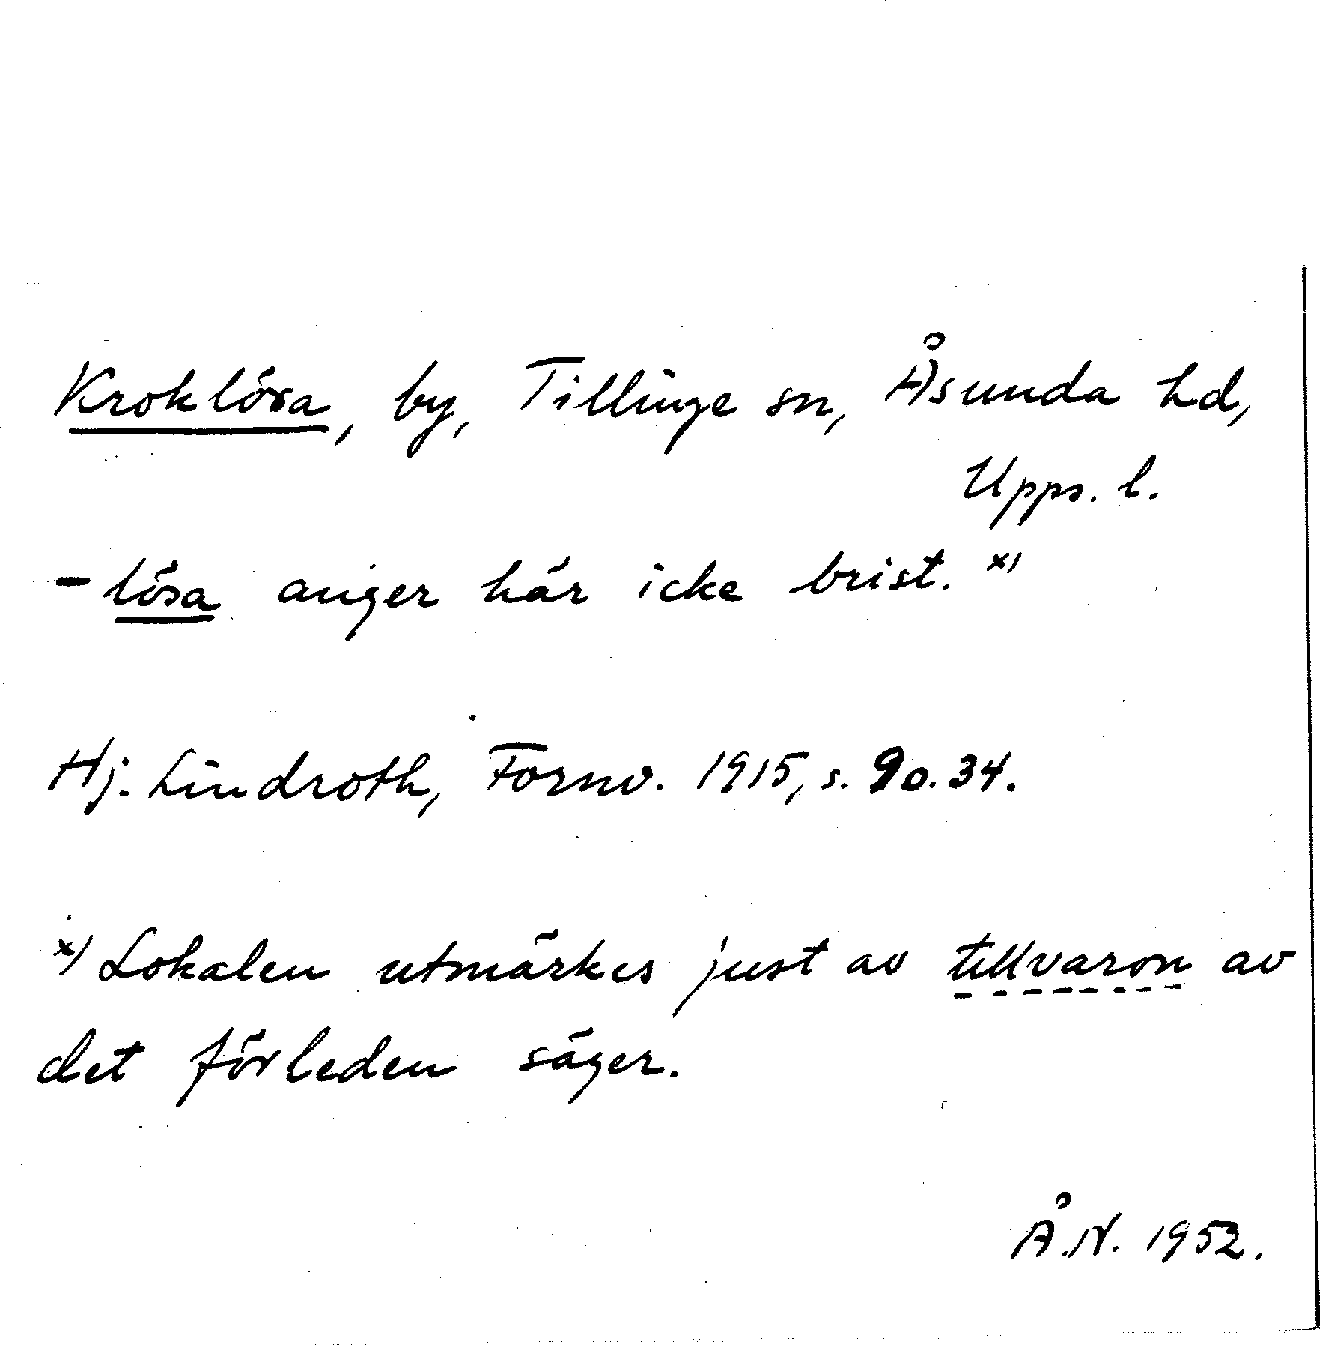 Kroklösa, by, Tillinge sn, Åsunda hd,
Upps. l.
- lösa anger här icke brist. x)
Hj. Lindroth, Fornv. 1915, s. 90. 34.
x) Lokalen utmärkes just av tillvaron av
det förleden säger.
Å.N. 1952.